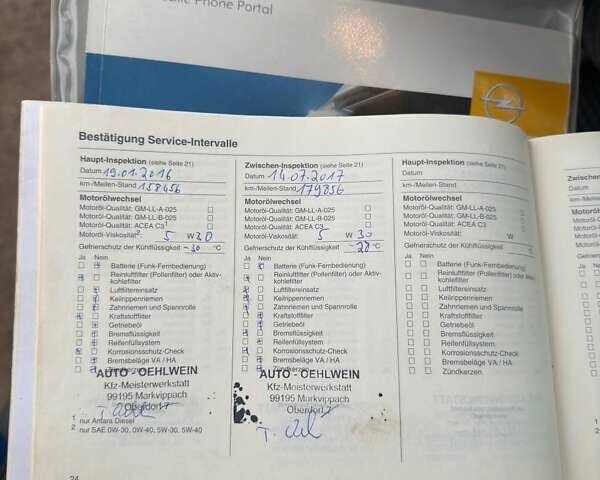 Phone Portal
Bestätigung Service-Intervalle
Haupt-Inspektion (siehe Seite 21)
Datum 19.01.2016
km-/Meilen-Stand 158456
Motorölwechsel
Motoröl-Qualität: GM-LL-A-025
Motoröl-Qualität: GM-LL-B-025
Motoröl-Qualität: ACEA C3
Motoröl-Viskosität² 5 W 30
Gefrierschutz der Kühlflüssigkeit -30 °C
Ja Nein
Batterie (Funk-Fernbedienung)
Reinluftfilter (Pollenfilter) oder Aktiv-
kohlefilter
Luftfiltereinsatz
Keilrippenriemen
Zahnriemen und Spannrolle
Kraftstofffilter
Getriebeöl
Bremsflüssigkeit
Reifenfüllsystem
Korrosionsschutz-Check
Bremsbeläge VA / HA
Zündkerzen
AUTO - OEHLWEIN
Kfz-Meisterwerkstatt
99195 Markvippach
Oberdorf 7
1 nur Antara Diesel
2 nur SAE 0W-30, 0W-40, 5W-30, 5W-40
24
Zwischen-Inspektion (siehe Seite 21)
Datum 14.07.2017
km-/Meilen-Stand 179856
Motorölwechsel
Motoröl-Qualität: GM-LL-A-025
Motoröl-Qualität: GM-LL-B-025
Motoröl-Qualität: ACEA C3
Motoröl-Viskosität 5 W 30
Gefrierschutz der Kühlflüssigkeit -28 °C
Ja Nein
Batterie (Funk-Fernbedienung)
Reinluftfilter (Pollenfilter) oder Aktiv-
kohlefilter
Luftfiltereinsatz
Keilrippenriemen
Zahnriemen und Spannrolle
Kraftstofffilter
Getriebeöl
Bremsflüssigkeit
Reifenfüllsystem
Korrosionsschutz-Check
Bremsbeläge VA / HA
Zündkerzen
AUTO - OEHLWEIN
Kfz-Meisterwerkstatt
99195 Markvippach
Oberdorf 7
Haupt-Inspektion (siehe Seite 21)
Datum
km-/Meilen-Stand
Motorölwechsel
Motoröl-Qualität: GM-LL-A-025
Motoröl-Qualität: GM-LL-B-025
Motoröl-Qualität: ACEA C3
Motoröl-Viskosität W
Gefrierschutz der Kühlflüssigkeit °C
Ja Nein
Batterie (Funk-Fernbedienung)
Reinluftfilter (Pollenfilter) oder Aktiv-
kohlefilter
Luftfiltereinsatz
Keilrippenriemen
Zahnriemen und Spannrolle
Kraftstofffilter
Getriebeöl
Bremsflüssigkeit
Reifenfüllsystem
Korrosionsschutz-Check
Bremsbeläge VA / HA
Zündkerzen
Datum
Ja Nein